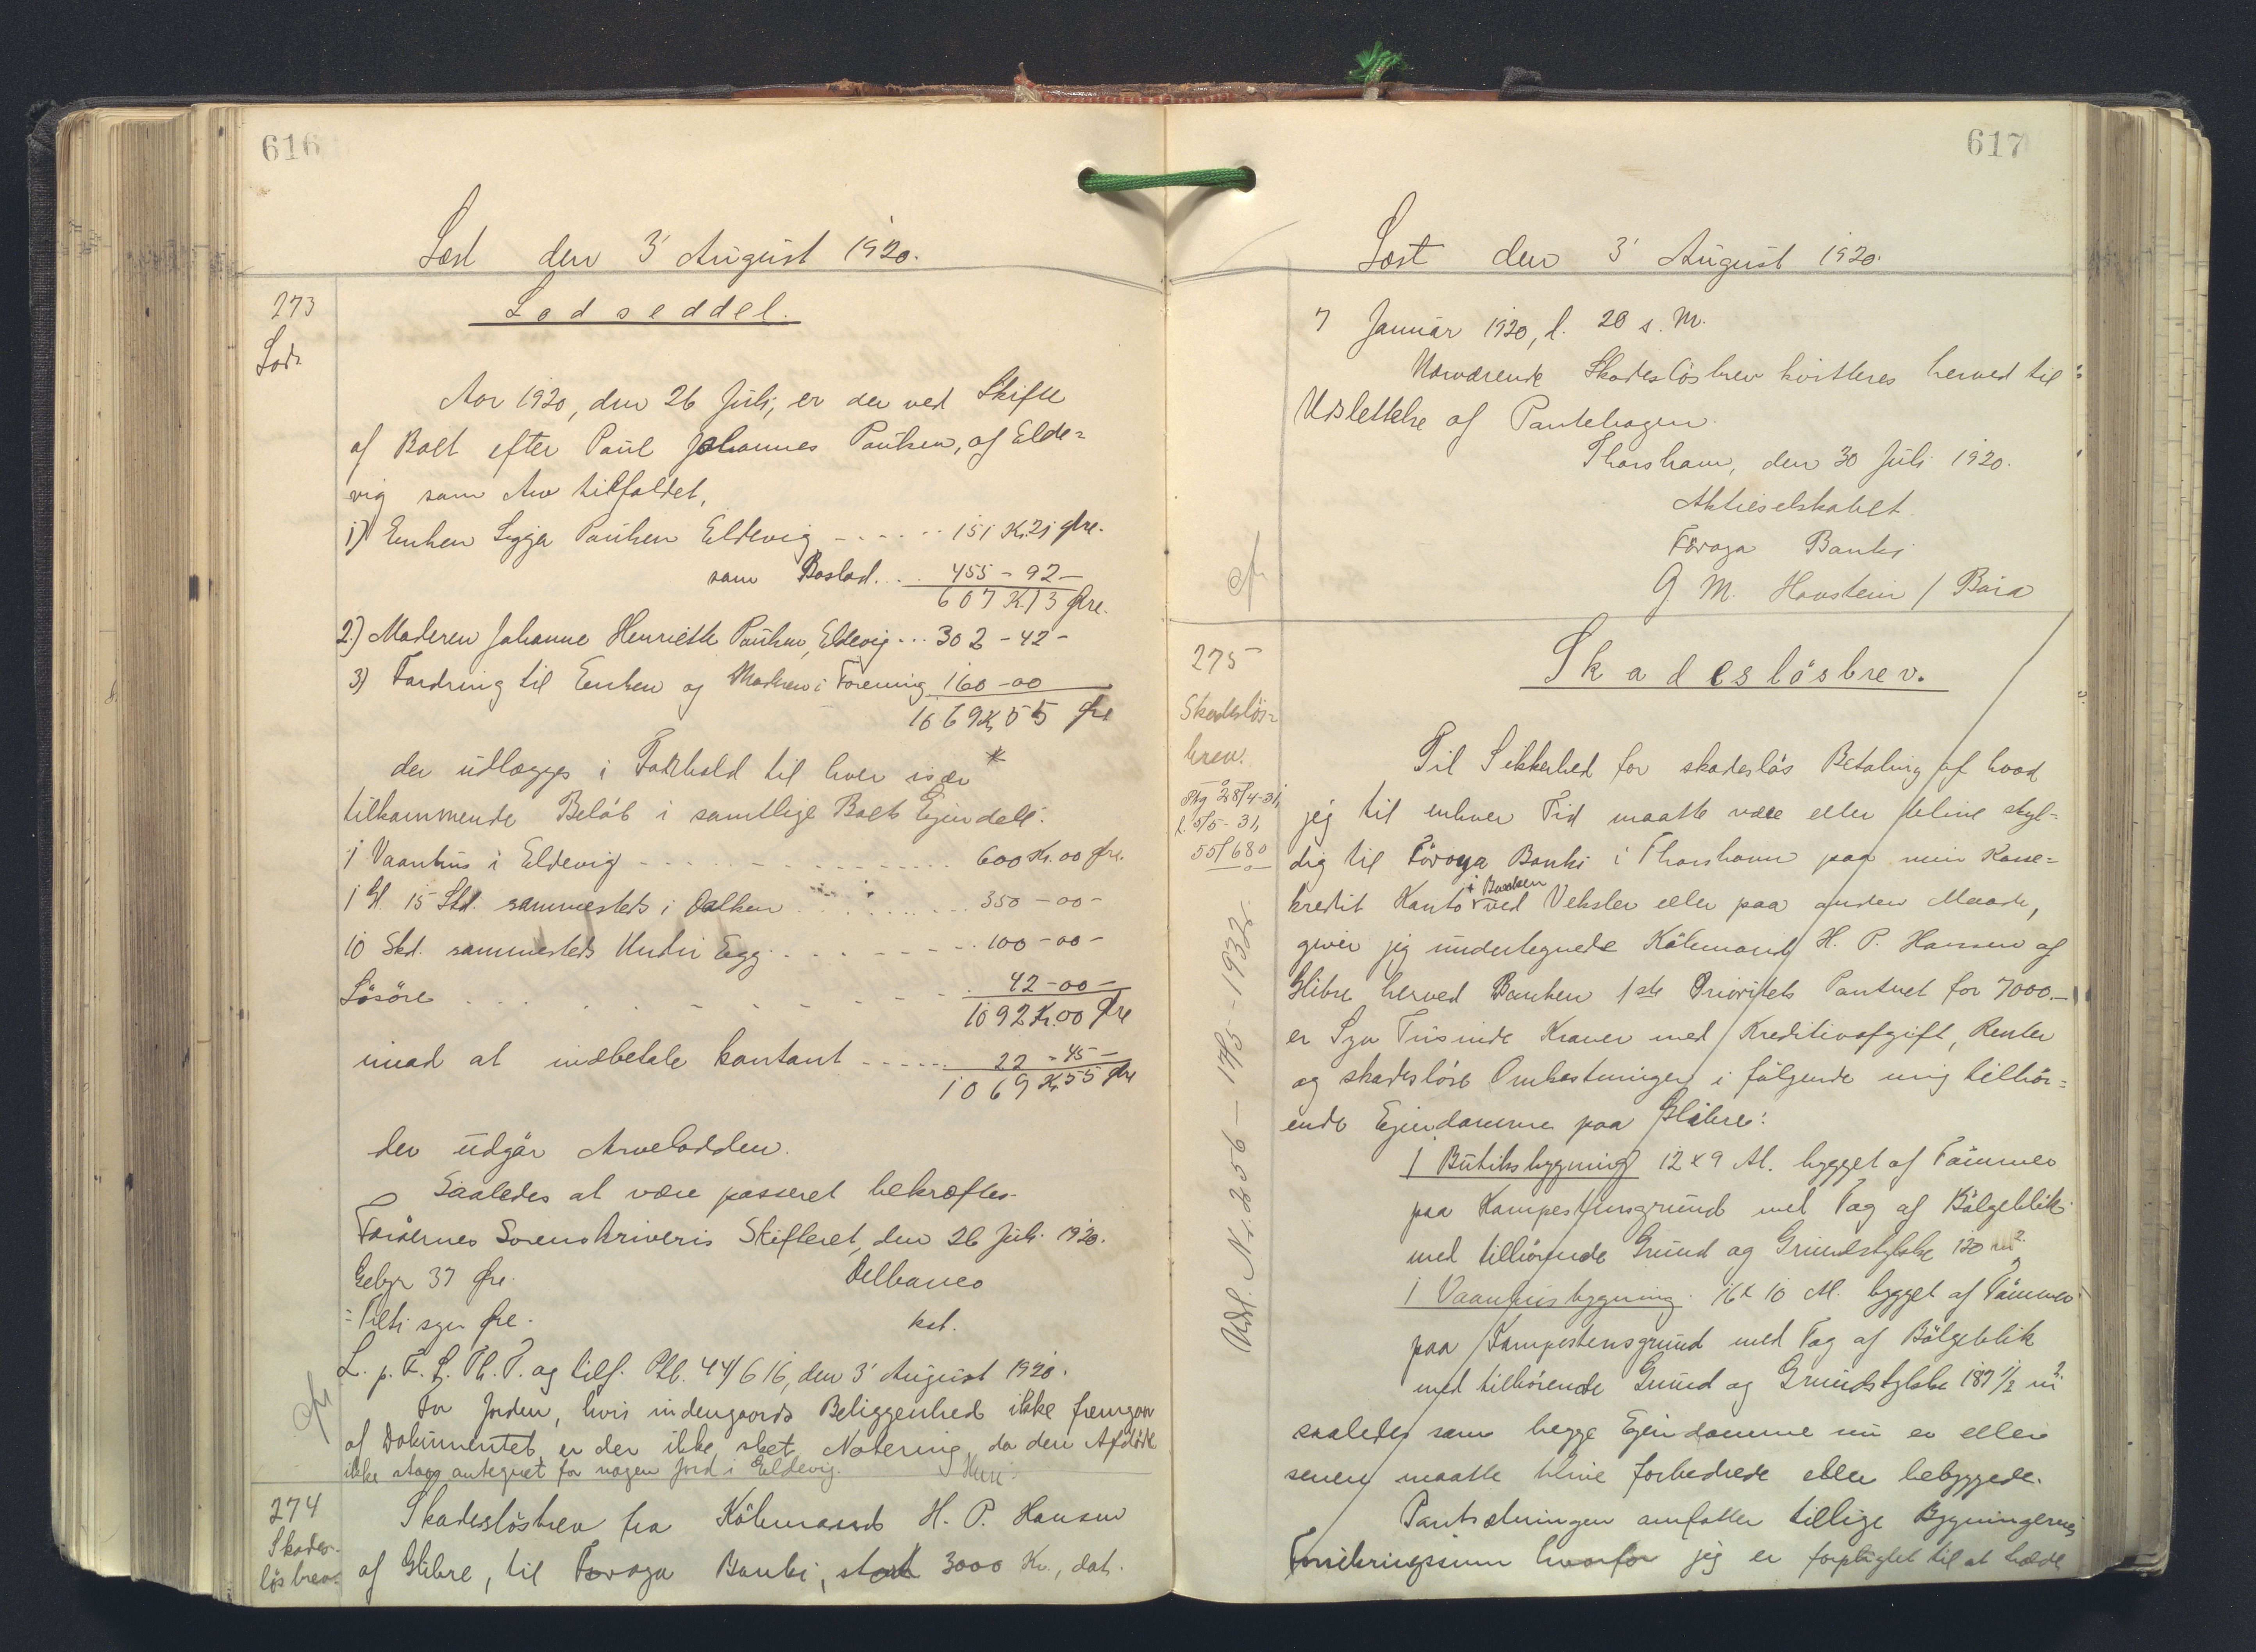 616
Læst den 3' August 1920.
273
Lods
Lodseddel.
Aar 1920, den 26 Juli, er der ved Skifte
af Boet efter Paul Johannes Paulsen, af Elde=
vig som Arv tilfaldet,
1) Enken Sigga Paulsen Eldevig - - - - - 151 Kr. 21 Øre.
som Boslod. . . 455 - 92 -
607 Kr. 13 Øre.
2.) Moderen Johanne Henriette Paulsen, Eldevig ... 302 - 42 -
3) Fordring til Enken og Moderen i Forening 160 - 00
1069 Kr 55 Øre
der udlægges i Forhold til hver især
tilkommende Beløb i samtlige Boets Ejendele:
1 Vaanhus i Eldevig - - - - - - 600 Kr. 00 Øre.
1 Gl. 15 Skd. sammesteds i . . . . 350 - 00 -
10 Skd. sammesteds Undir Egg . . . - - - 100 - 00 -
Lösöre . . . - - - - 42 - 00 -
1092 Kr. 00 Øre
imod at indbetale kontant - - - - - 22 - 45 -
1069 Kr 55 Øre
der udgör Arvelodden.
Saaledes at være passeret bekræftes.
Færöernes Sorenskriveris Skifteret, den 26 Juli 1920.
Gebyr 37 Øre. Delbanco
= Treti syv Øre. kst.
L. p. F. S. Th. T. og tilf. Ptb. 44/616, den 3' August 1920.
For Jorden, hvis indengaards Beliggenhed ikke fremgaar
af Dokumentet, er der ikke sket Notering, da den Afdöde
ikke staar antegnet for nogen Jord i Eldevig.
274
Skades-
lösbrev.
Skadeslösbrev fra Köbmand H. P. Hansen
af Glibre, til Föroya Banki, stort 3000 Kr., dat.
617
Læst den 3' August 1920.
7 Januar 1920, l. 20 s. M.
Nærværende Skadeslösbrev kvitteres herved til
Udslettelse af Pantebogen.
Thorshavn, den 30 Juli 1920.
Aktieselskabet
Föroya Banki
J. M. Havstein / Bára
275
Skadeslös=
brev.
Ptg 28/4-31,
l. 5/5-31,
55/680
Udsl. Nr. 256 - 17/5 - 1932.
Skadeslösbrev.
Til Sikkerhed for skadeslös Betaling af hvad
jeg til enhver Tid maatte være eller blive skyl=
dig til Föroya Banki i Thorshavn paa min Kasse=
kredit Konto i Banken ved Veksler eller paa anden Maade,
giver jeg undertegnede Köbmand H. P. Hansen af
Glibre herved Banken 1ste Prioritets Panteret for 7000.—
er Syv Tusinde Kroner med Kreditivafgift, Renter
og skadeslöse Omkostninger i fölgende mig tilhör=
ende Ejendomme paa Glibre:
1 Butiksbygning 12 x 9 Al. bygget af Tömmer
paa Kampestensgrund med Tag af Bölgeblik
med tilhörende Grund og Grundstykke 120 m²
1 Vaanhusbygning 16 x 10 Al. bygget af Tömmer
paa Kampestensgrund med Tag af Bölgeblik
med tilhörende Grund og Grundstykke 187 1/2 m²
saaledes som begge Ejendomme nu er eller
senere maatte blive forbedrede eller bebyggede.
Pantsætningen omfatter tillige Bygningernes
Forsikringssum hvorfor jeg er forpligtet til at holde